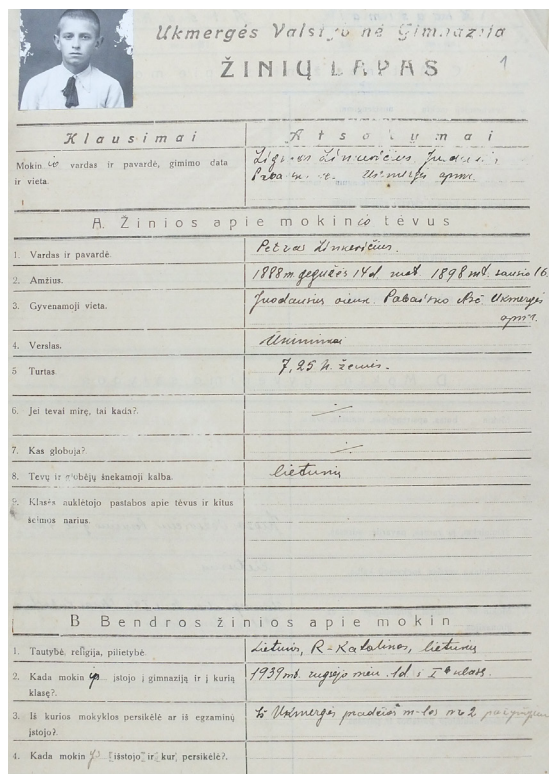 Ukmergės Valstybinė Gimnazija
ŽINIŲ LAPAS
1
Klausimai Atsakymai
Mokinio vardas ir pavardė, gimimo data Linkevičius
ir vieta. Ukmergės apskr.
A. Žinios apie mokinio tėvus
1. Vardas ir pavardė. Petras Linkevičius.
2. Amžius. 1888 m gegužės 14 d mot. 1898 mt. sausio 16.
3. Gyvenamoji vieta. Juodausių vienk. Pabaisko Ukmergės
apskr.
4. Verslas. Ūkininkas
5 Turtas 7,25 h. žemės.
6. Jei tėvai mirę, tai kada?.
7. Kas globoja?
8. Tėvų ir globėjų šnekamoji kalba. lietuvių
9. Klasės auklėtojo pastabos apie tėvus ir kitus
šeimos narius.
B Bendros žinios apie mokin
1. Tautybė, religija, pilietybė. Lietuvis, R-Katalikas, lietuvių
2. Kada mokin įstojo į gimnaziją ir į kurią 1939 mt. rugsėjo mėn. 1 d į I klasę.
klasę?.
3. Iš kurios mokyklos persikėlė ar iš egzaminų Iš Ukmergės pradžios m-los nr 2
įstojo?.
4. Kada mokin išstojo ir kur persikėlė?.